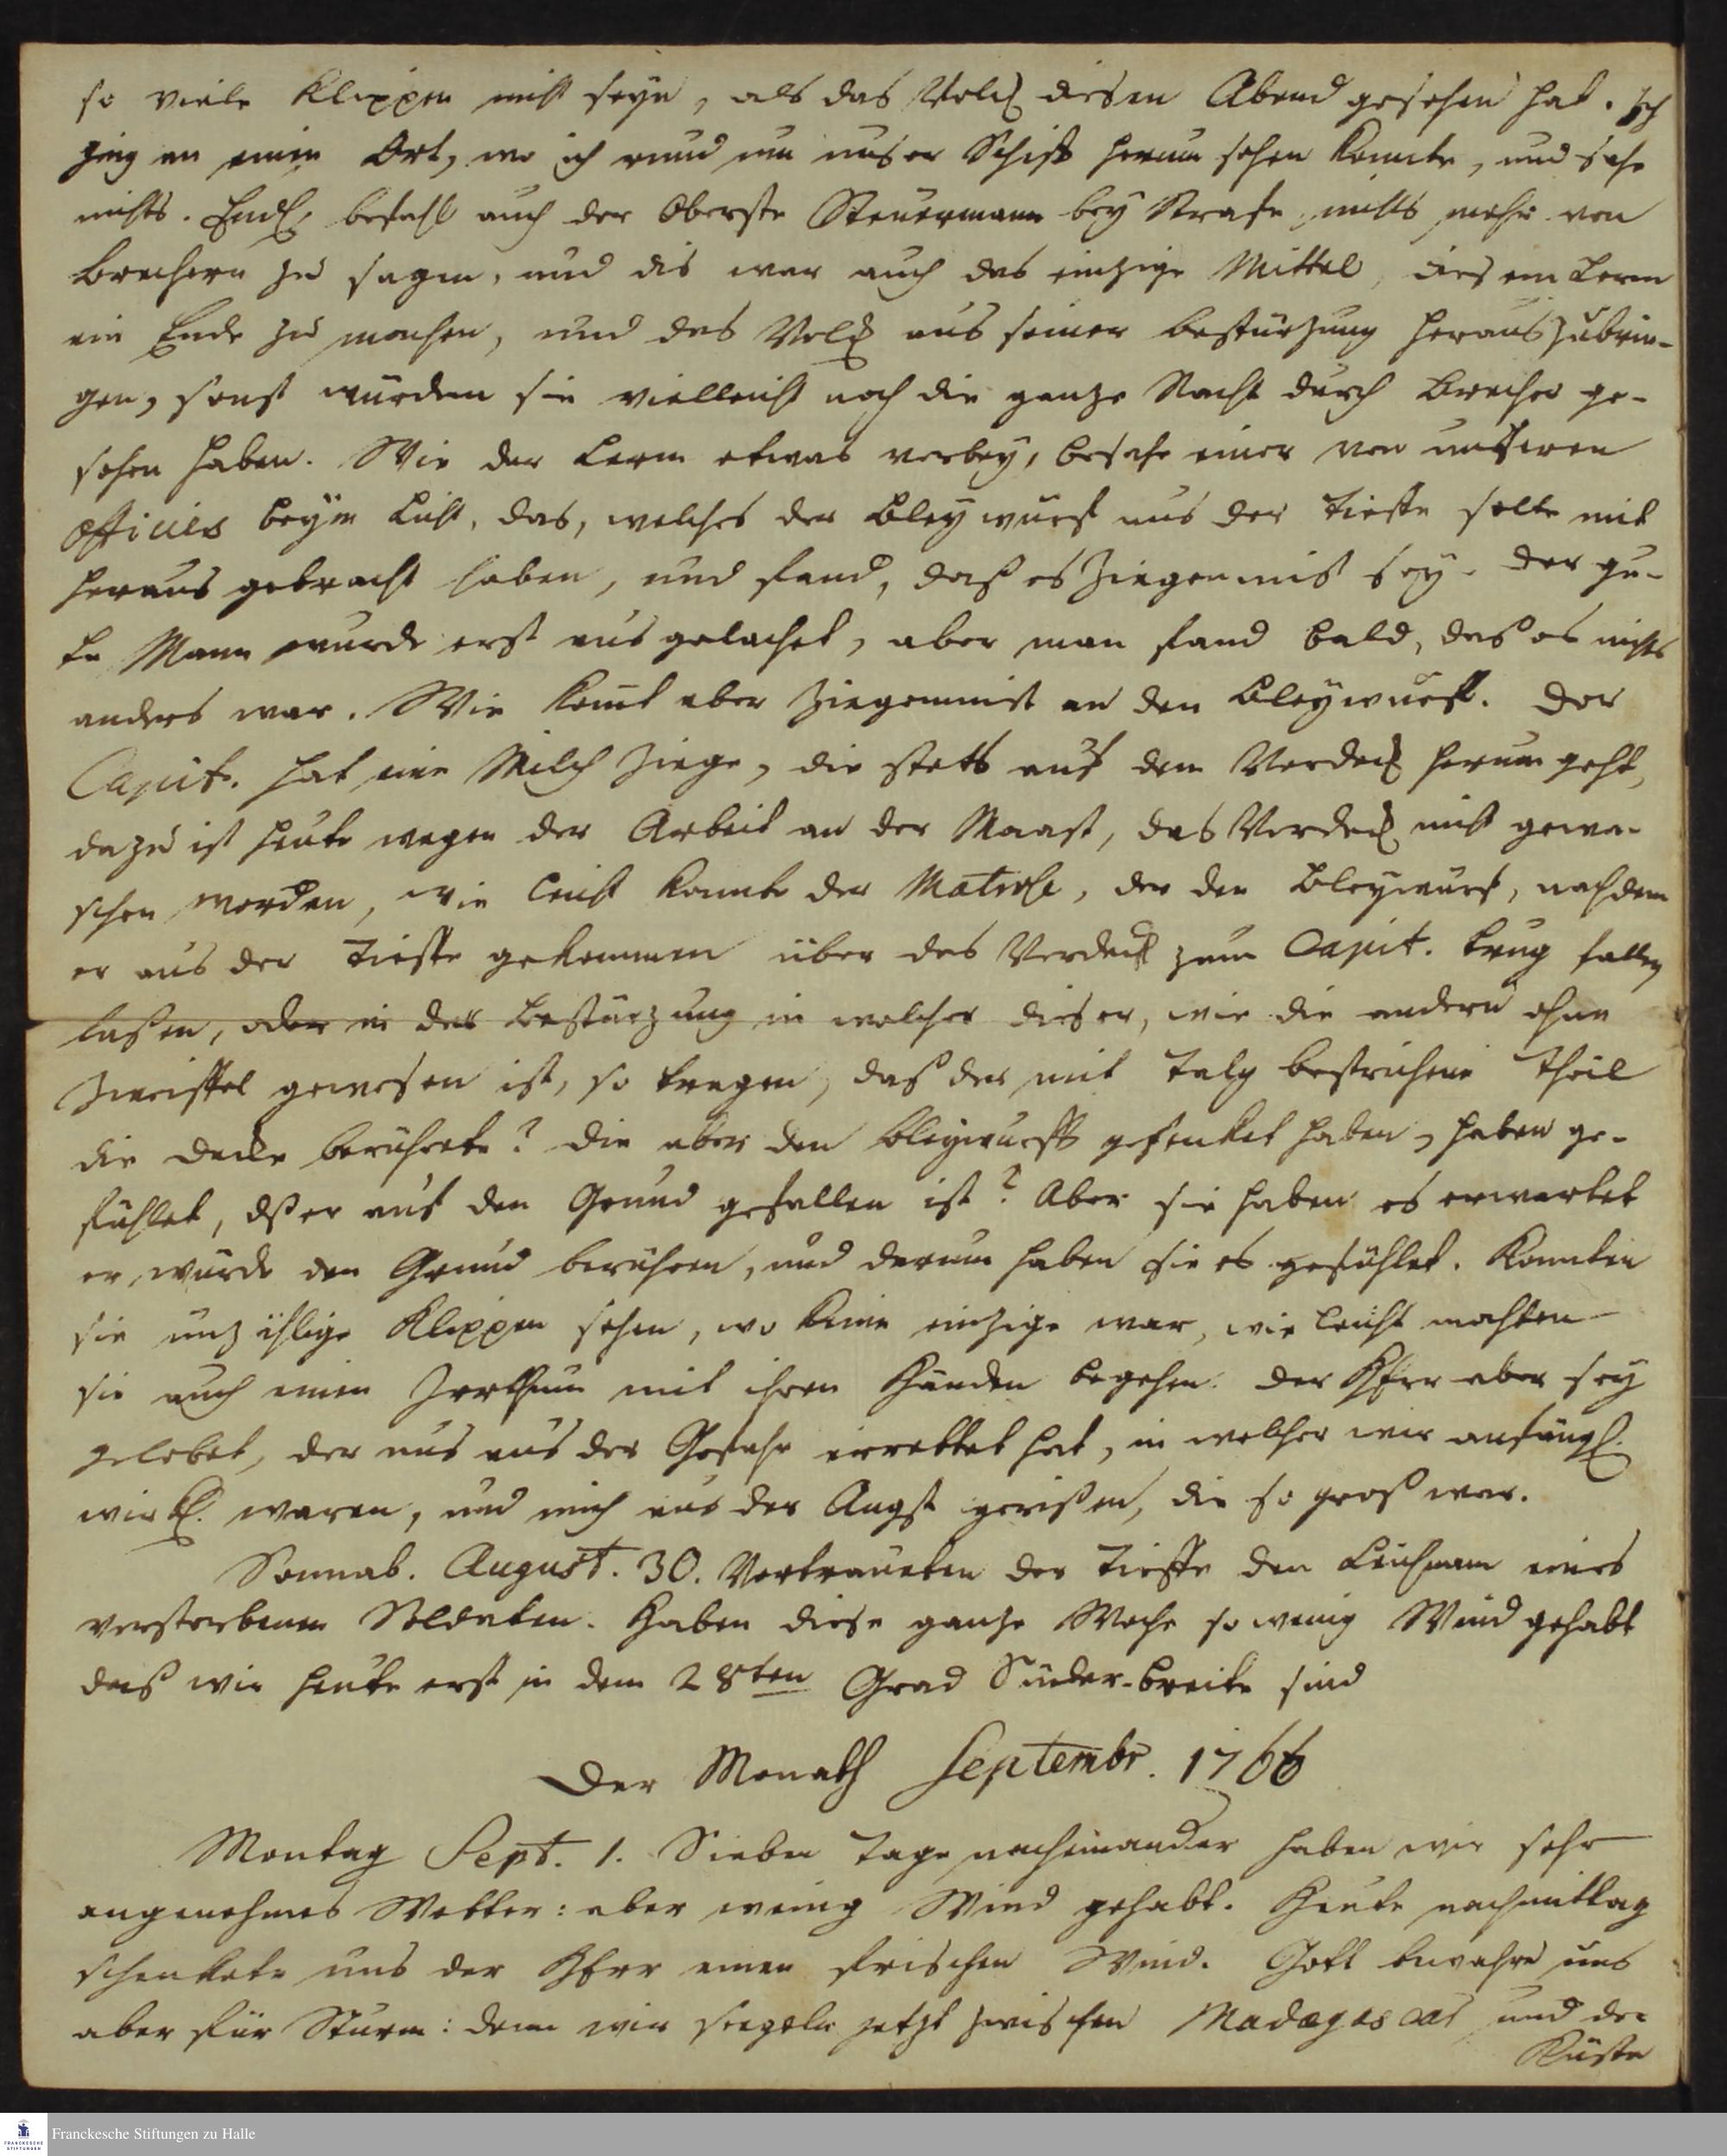 so viele Klippen nicht seyn, als das Volck diesen Abend gesehen hat. Ich
ging an einen Ort, wo ich rund um unser Schiff herum sehen konnte, und sahe
nichts. Endl. befahl auch der Oberste Steuermann bey Strafe, nichts mehr von
Brechern zu sagen, und dis war auch das einzige Mittel, diesem Lerm
ein Ende zu machen, und das Volck aus seiner Bestürzung herauszubrin-
gen, sonst würden sie vielleicht noch die ganze Nacht durch Brecher ge-
sehen haben. Wie der Lerm etwas vorbey, besahe einer von unseren
Officiers beym Licht, das, welches der Bleywurf aus der Tieffe solte mit
heraus gebracht haben, und fand, daß es Ziegenmist sey. Der gu-
te Mann wurde erst ausgelachet, aber man fand bald, daß es nichts
anders war. Wie komt aber Ziegenmist an den Bleywurff. Der
Capit. hat eine Milch Ziege, die stets auf dem Verdeck herum geht,
dazu ist heute wegen der Arbeit an der Maast, das Verdeck nicht gewa-
schen worden, wie leicht konnte der Matrose, der den Bleywurf, nachdem
er aus der Tieffe gekommen über das Verdeck zum Capit. trug fallen
laßen, oder in der Bestürzung in welcher dieser, wie die andern ohne
Zweiffel gewesen ist, so tragen, daß der mit Talg bestrichene Theil
die Decke berührete? Die aber den Bleywurff gesenket haben, haben ge-
fühlet, dß er auf den Grund gefallen ist? Aber sie haben es erwartet
er würde den Grund berühren, und darum haben sie es gefühlet. Konnten
sie unzählige Klippen sehen, wo keine einzige war, wie leicht mochten
sie auch einen Irrthum mit ihren Händen begehen. Der HErr aber sey
gelobet, der uns aus der Gefahr errettet hat, in welcher wir anfängl.
wirkl. waren, und mich aus der Angst gerißen, die so groß war.
Sonnab. August. 30. Vertraueten der Tieffe den Leichnam eines
verstorbenen Soldaten. Haben diese ganze Woche so wenig Wind gehabt
daß wir heute erst in dem 28ten Grad Süder-breite sind
Der Monath Septembr. 1766
Montag Sept. 1. Sieben Tage nacheinander haben wir sehr
angenehmes Wetter: aber wenig Wind gehabt. Heute nachmittag
schenkete uns der HErr einen frischen Wind. Gott bewahre uns
aber für Sturm: denn wir seegeln jetzt zwischen Madagascar und der
Küste
Franckesche Stiftungen zu Halle